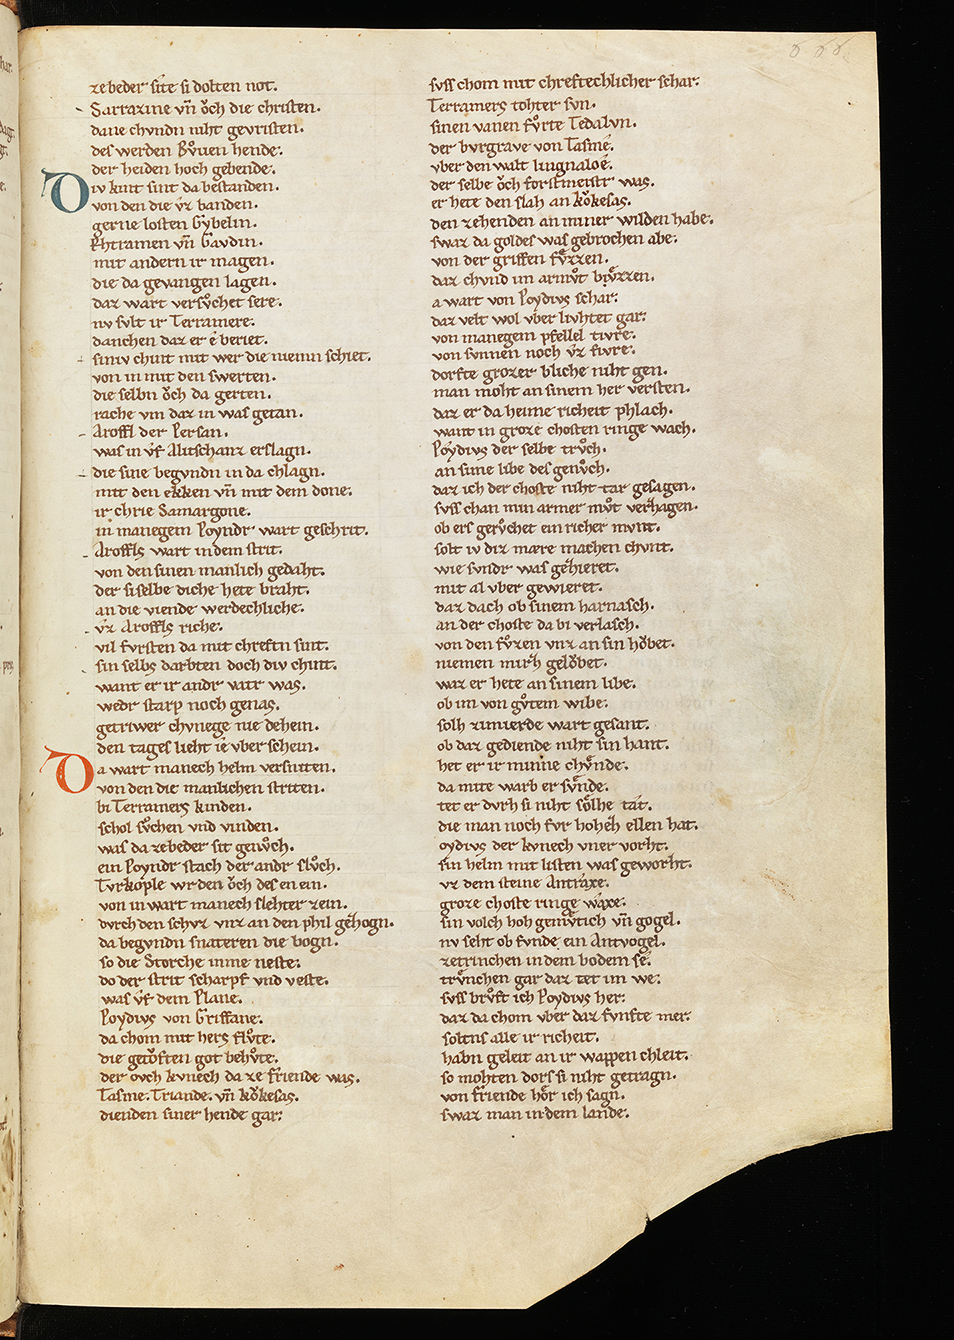 zebeder site si dolten not.
Sarrazine vn̄ oͮch die christen.
daue chvndn niht gevristen.
des werden Bv̊uen hende.
der heiden hoch gebende.
Div kint sint da bestanden.
von den die vz banden.
gerne losten Gybelin.
khtramen vn̄ Gavdin.
mit andern ir magen.
die da gevangen lagen.
daz wart versv̊chet sere.
nv svlt ir Terramere.
danchen daz er e beriet.
siniv chint mit wer die niemn schiet.
von in mit den swerten.
die selbn oͮch da gerten.
rache vm daz in was getan.
Aroffl der Persan.
was in vf Alitschanz erslagn.
die sine begvndn in da chlagn.
mit den ekken vn̄ mit dem done.
ir chrie Samargone.
in manegem Poyndr wart geschrit.
Aroffls wart in dem strit.
von den sinen manlich gedaht.
der si selbe diche hete braht.
an die viende werdechliche.
vz Aroffls riche.
vil fvrsten da mit chreftn sint.
sin selbs darbten doch div chint.
want er ir andr vatr was.
wedr starp noch genas.
getriwer chvnege nie dehein.
den tages lieht ie vber schein.
Da wart manech helm versniten.
von den die manlichen striten.
bi Terramers kinden.
schol sv̊chen vnd vinden.
was da zebeder sit genv̊ch.
ein Poyndr stach der andr slv̊ch.
Tvrkople wrden oͮch des en ein.
von in wart manech slehter zein.
dvrch den schvz vnz an den phil gehogn.
da begvndn snateren die bogn.
so die Storche inme neste.
do der strit scharpf vnd veste.
was vf dem Plane.
Poydivs von Griffane.
da chom mit hers flv̊te.
die getoͮften got behv̊te.
der ovch kvnech da ze friende was.
Tasme. Triande. vn̄ koͮkesas.
dienden siner hende gar.
svss chom mit chreftechlicher schar.
Terramers tohter svn.
sinen vanen fv̊rte Tedalvn.
der bvrgrave von Tasme.
vber den walt lingnaloe.
der selbe oͮch forstmeistr was.
er hete den slah an koͮkesas.
den zehenden an miner wilden habe.
swaz da goldes was gebrochen abe.
von der griffen fv̊zzen.
daz chvnd im armv̊t bv̊zzen.
a wart von Poydivs schar.
daz velt wol vber livhtet gar.
von manegem pfellel tivre.
von svnnen noch vz fivre.
dorfte grozer bliche niht gen.
man moht an sinem her versten.
daz er da heime richeit phlach.
want in groze chosten ringe wach.
Poydivs der selbe trv̊ch.
an sime libe des genv̊ch.
daz ich der choste niht tar gesagen.
svss chan min armer mv̊t verzhagen.
ob ers gerv̊chet ein richer mvnt.
solt iv diz mære machen chvnt.
wie svndr was gehieret.
mit al vber gewieret.
daz dach ob sinem harnasch.
an der choste da bi verlasch.
von den fv̊zen vnz an sin hoͮbet.
niemen mirh geloͮbet.
waz er hete an sinem libe.
ob im von gv̊tem wibe.
solh zimierde wart gesant.
ob daz gediende niht sin hant.
het er ir minne chv̊nde.
da mite warb er sv̊nde.
tet er dvrh si niht soͤlhe tat.
die man noch fvr hoheh ellen hat.
oydivs der kvnech vner vorht.
sin helm mit listen was geworht.
vz dem steine Antraxe.
groze choste ringe waxe.
sin volch hoh gemv̊tich vn̄ gogel.
nv seht ob fvnde ein Antvogel.
zetrinchen in dem bodem se.
trv̊nchen gar daz tet im we.
svss brv̊ft ich Poydivs her.
daz da chom vber daz fvnfte mer.
soltns alle ir richeit.
habn geleit an ir wappen chleit.
so mohten dors si niht getragn.
von friende hoͤr ich sagn.
swaz man in dem lande.